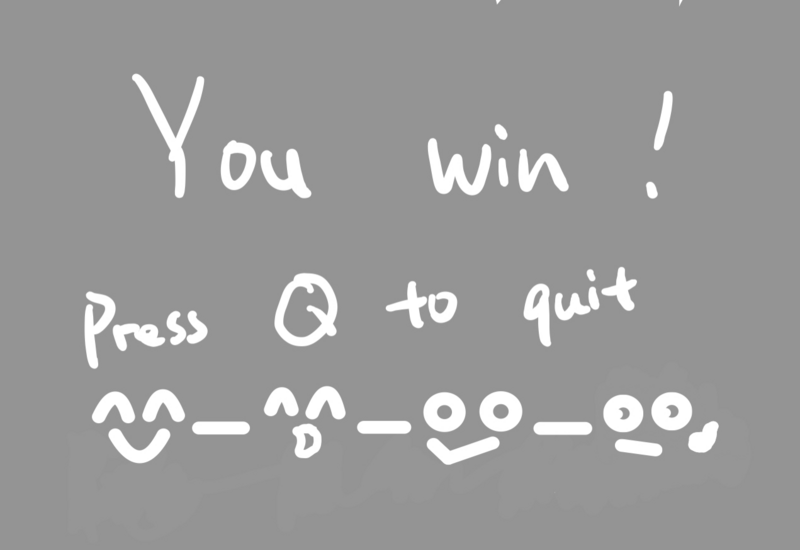 You win!
Press Q to quit